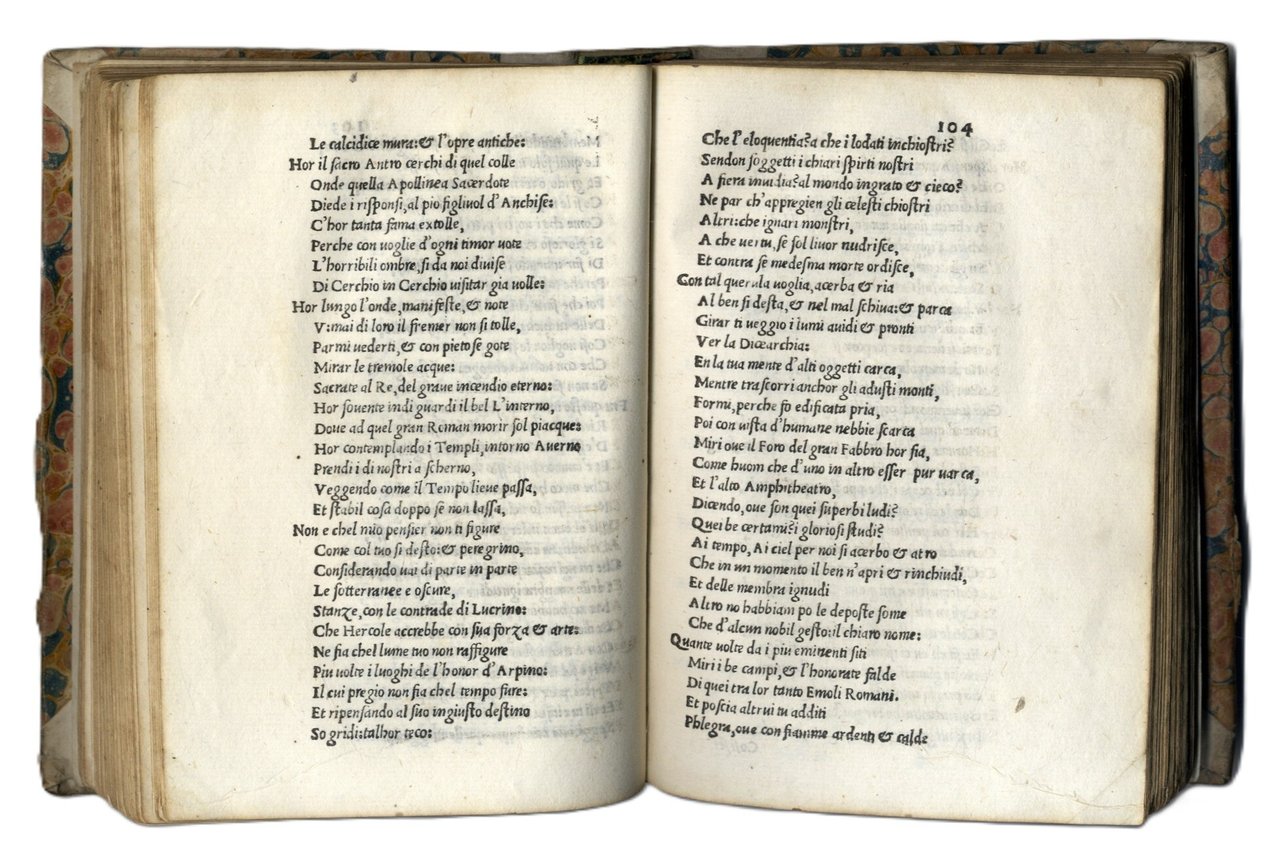 Le calcidice mura: & l'opre antiche:
Hor il sacro Antro cerchi di quel colle
Onde quella Apollinea Sacerdote
Diede i risponsi, al pio figliuol d'Anchise:
C'hor tanta fama extolle,
Perche con uoglie d'ogni timor uote
L'horribili ombre, si da noi diuise
Di Cerchio in Cerchio uisitar gia uolle:
Hor lungo l'onde, manifeste, & note
V: mai di loro il fremer non si tolle,
Parmi uederti, & con pietose gote
Mirar le tremole acque:
Sacrate al Re, del graue incendio eterno:
Hor souente indi guardi il bel L'interno,
Doue ad quel gran Roman morir sol piacque:
Hor contemplando i Templi, intorno Auerno
Prendi i di nostri a scherno,
Veggendo come il Tempo lieue passa,
Et stabil cosa doppo se non lassa,
Non e chel mio pensier non ti figure
Come col tuo si desto: & peregrino,
Considerando uai di parte in parte
Le sotterranee oscure,
Stanze, con le contrade di Lucrino:
Che Hercole accrebbe con sua forza & arte:
Ne fia chel lume tuo non raffigure
Piu uolte i luoghi de l'honor d'Arpino:
Il cui pregio non fia chel tempo fure:
Et ripensando al suo ingiusto destino
So gridi: talhor teco:
104
Che l'eloquentia? a che i lodati inchiostri?
Sendon soggetti i chiari spirti nostri
A fiera inuidia? al mondo ingrato & cieco?
Ne par ch'appregien gli celesti chiostri
Altri: che ignari monstri,
A che uei tu, se sol liuor nudrisce,
Et contra se medesma morte ordisce,
Con tal querula uoglia, acerba & ria
Al ben si desta, & nel mal schiua: & parca
Girar ti ueggio i lumi auidi & pronti
Ver la Dicearchia:
En la tua mente d'alti oggetti carca,
Mentre trascorri anchor gli adusti monti,
Formi, perche fo edificata pria,
Poi con uista d'humane nebbie scarca
Miri oue il Foro del gran Fabbro hor sia,
Come huom che d'uno in altro esser pur uarca,
Et l'alto Amphitheatro,
Dicendo, oue son quei superbi ludi?
Quei be certamı? i gloriosi studi?
Ai tempo, Ai ciel per noi si acerbo & atro
Che in un momento il ben n'apri & rinchiudi,
Et delle membra ignudi
Altro no habbiam po le deposte some
Che d'alcun nobil gesto: il chiaro nome:
Quante uolte da i piu eminenti siti
Miri i be campi, & l'honorate falde
Di quei tra lor tanto Emoli Romani.
Et poscia altrui tu additi
Phlegra, oue con fiamme ardenti & calde